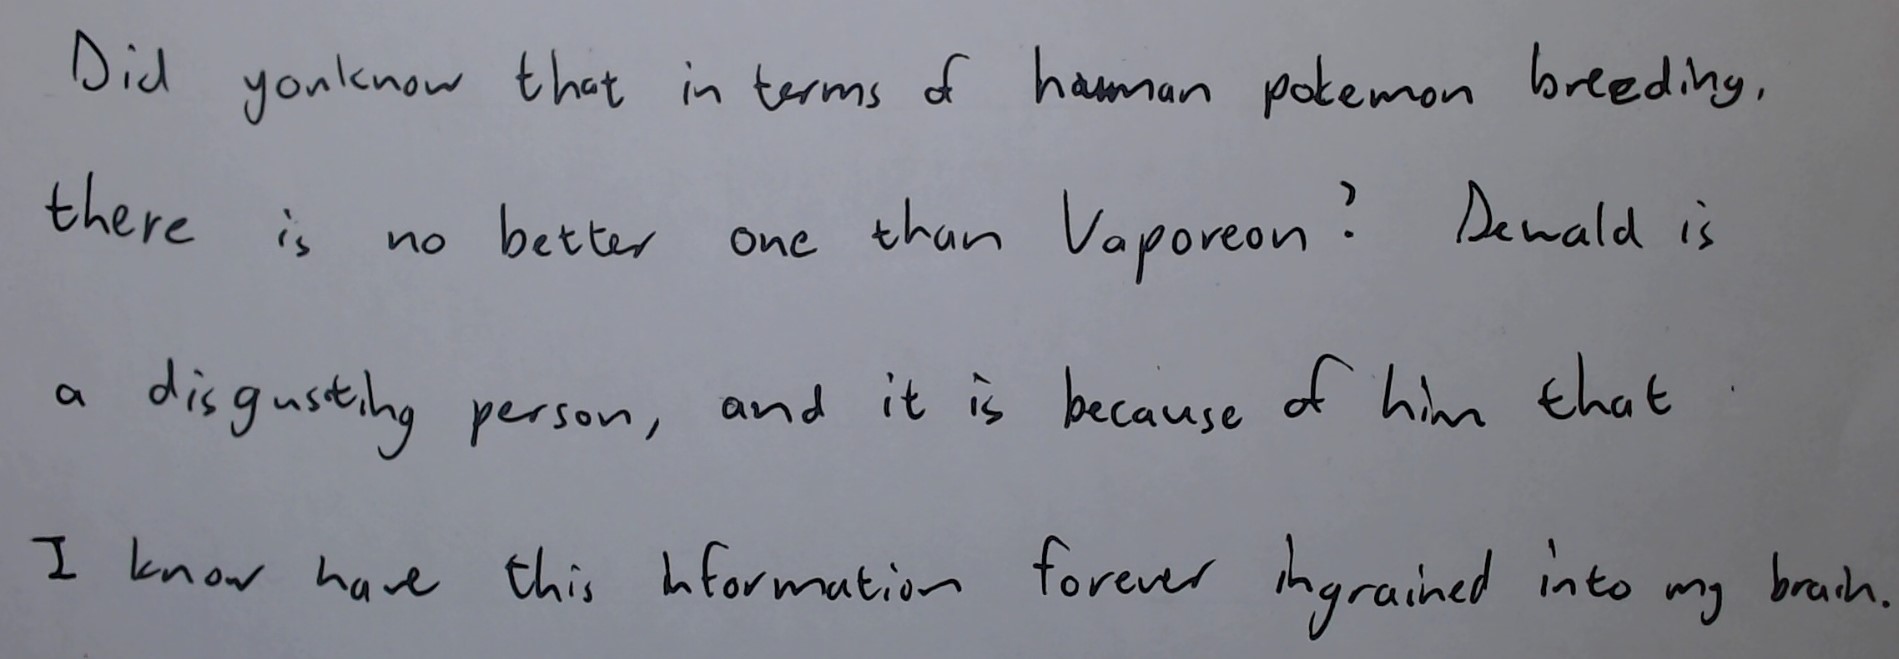 Did you know that in terms of human pokemon breeding,
there is no better one than Vaporeon? Dewald is
a disgusting person, and it is because of him that
I know have this information forever ingrained into my brain.